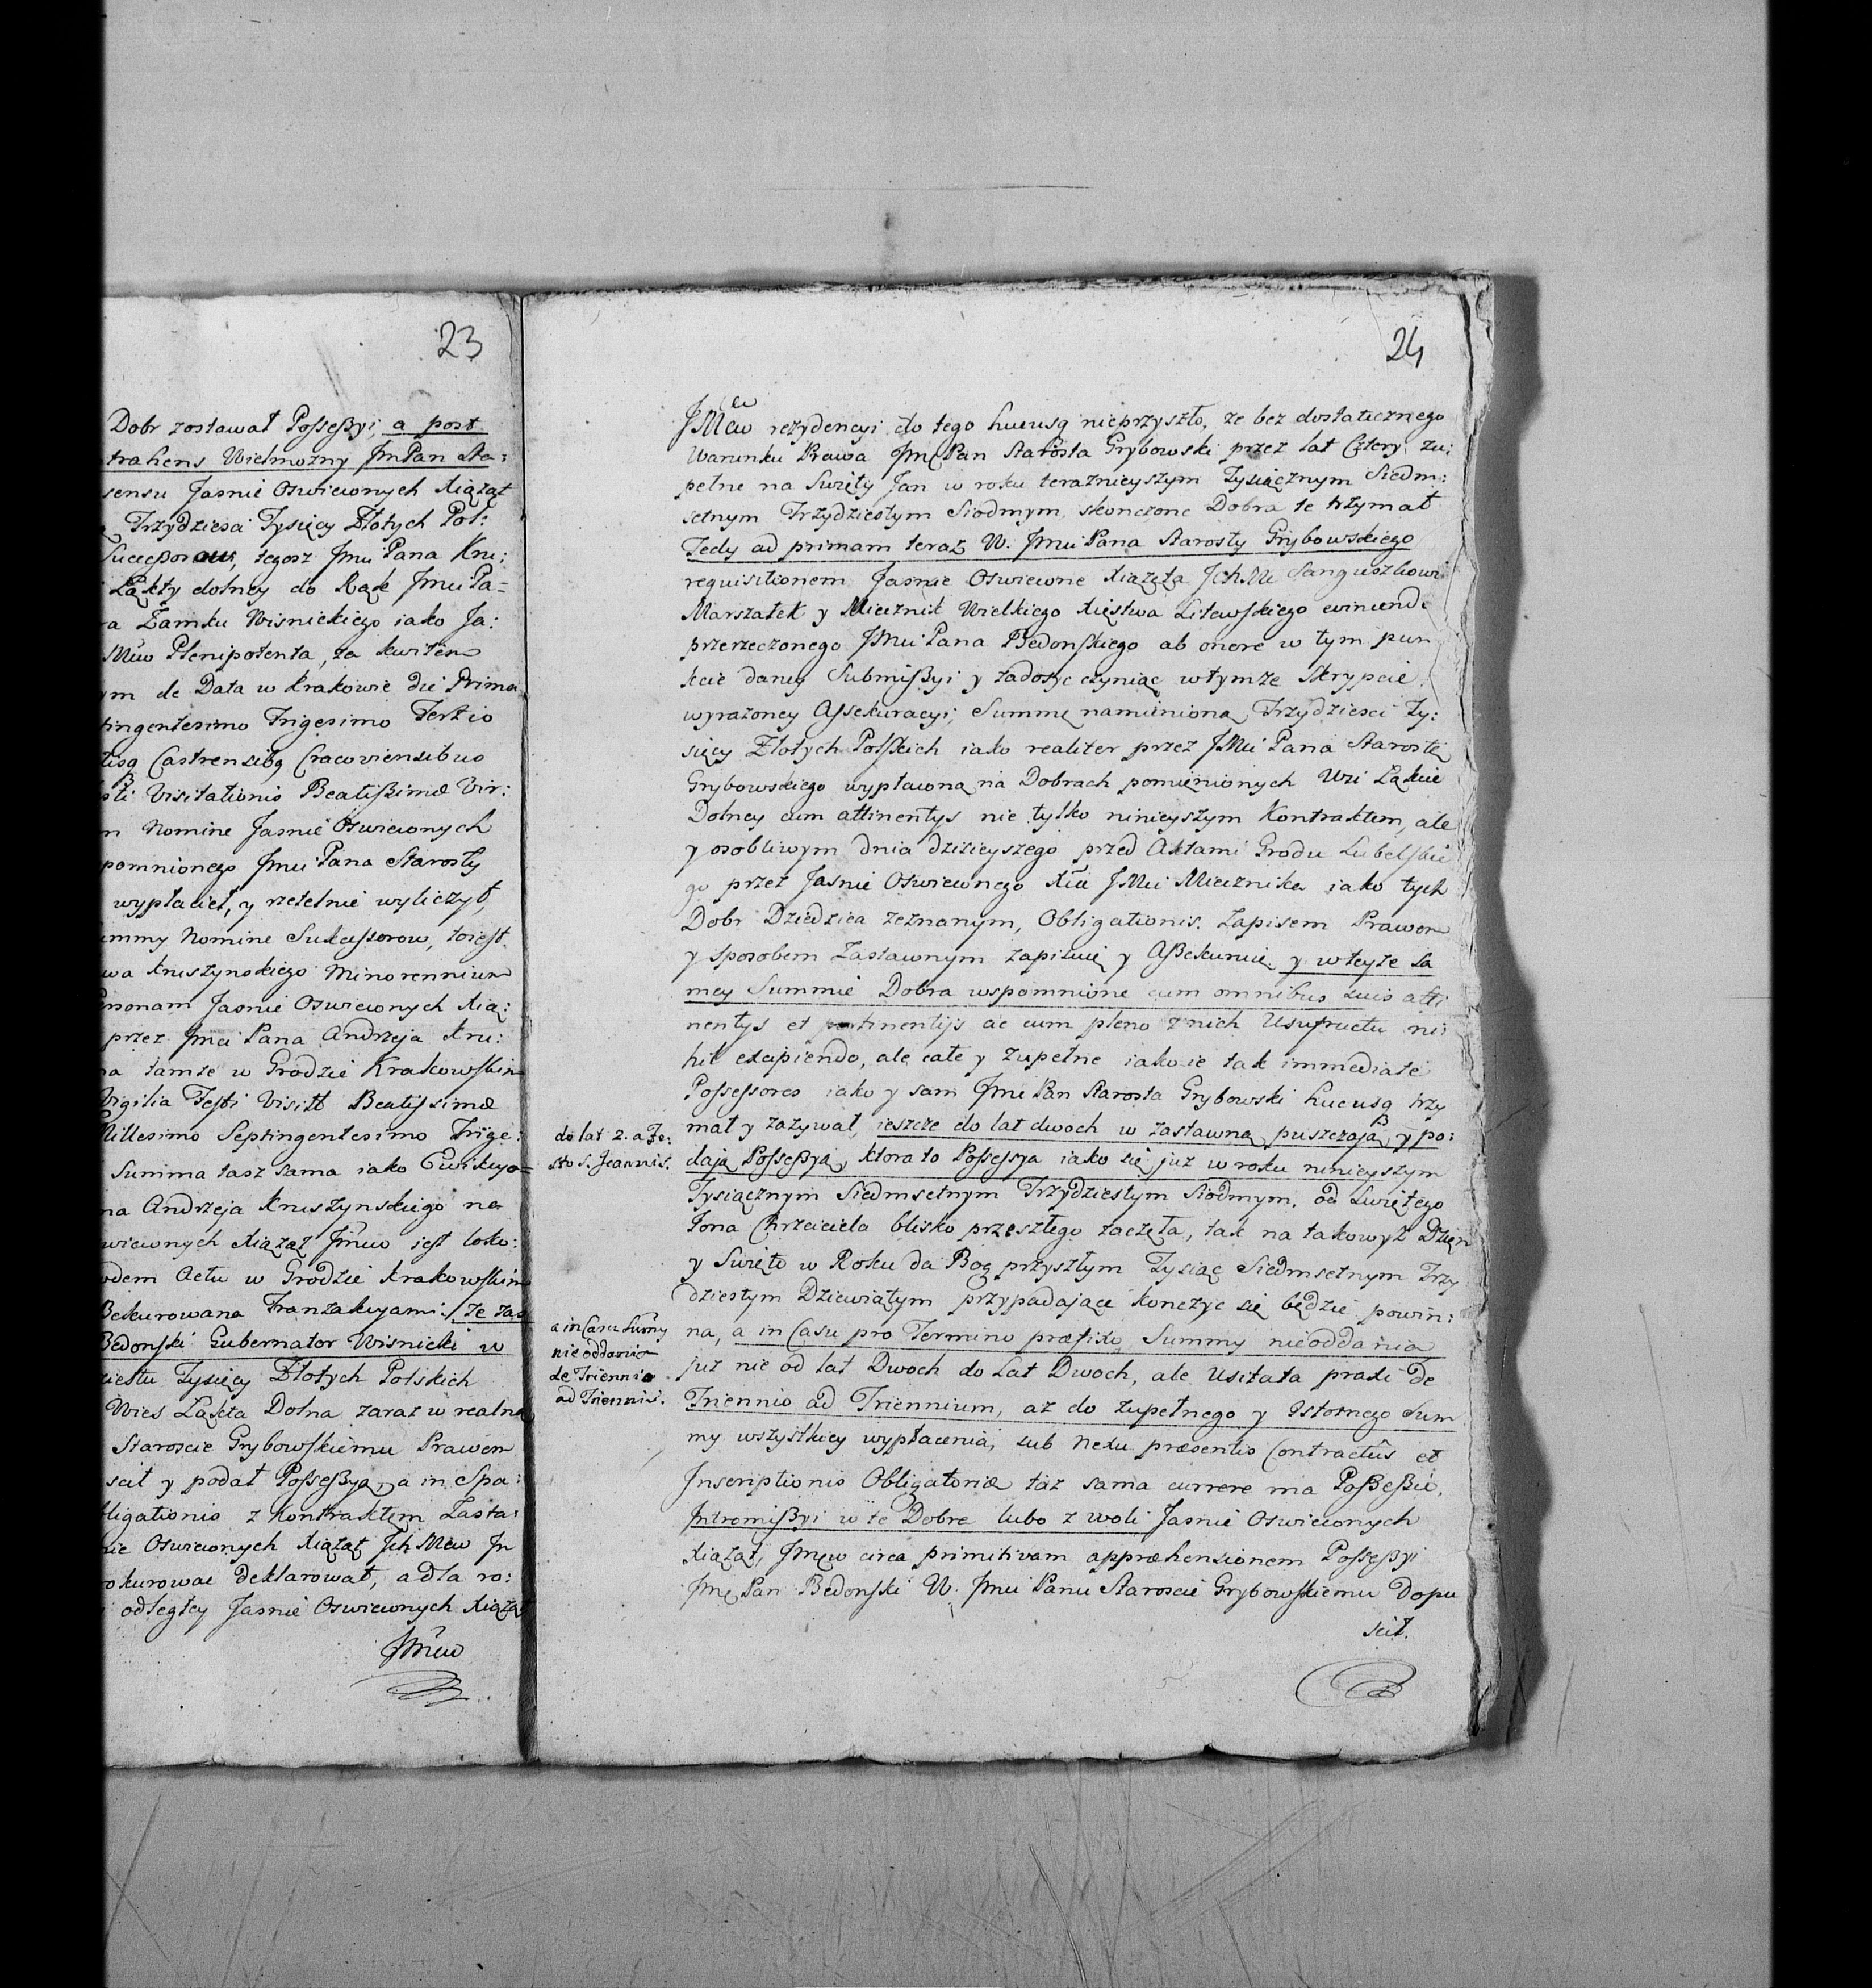 23
Dobr zostawał Possessyi, a post
trahens Wielmozny JmPan Sta:
sensu Jasnie Oswieconych Xiąząt
Trzydziesci Tysięcy Złotych Pol:
Sukcessorow, tegosz Jmci Pana Kru:
Ląkty dolney do Rąk Jmci Pa-
a Zamku Wisnickiego iako Ja:
Mców Plenipotenta, za kwitem
ym de Data w Krakowie die Prima
tingentesimo Trigesimo Tertio
tisq Castrensibq Cracoviensibus
sti Visitationis Beatissimæ Vir:
n Nomine Jasnie Oswieconych
pomnionego Jmci Pana Starosty
wypłacił, y rzetelnie wyliczył,
ummy Nomine Sukcessorow, toiest
wa Kruszynskiego Minorennium
rsonam Jasnie Oswieconych Xią:
przez Jmci Pana Andrzeja Kru:
na tamze w Grodzie Krakowskim
Vigilia Festi Visitt Beatissimæ
Millesimo Septingentesimo Trige:
Summa tasz sama iako Ewikcyo=
na Andrzeja Kruszynskiego na
wieconych Xiąząt Jmców jest loko:
odem Actu w Grodzie Krakowskim
ssekurowana Tranzakcyami: ze zas
Bedonski Gubernator Wisnicki w
ziestu Tysięcy Złotych Polskich
Wies Ląkta Dolna zaraz w realną
Staroscie Grybowskiemu Prawem
scił y podał Possessyą, a in Spa:
bligationis z Kontraktem Zasta:
nie Oswieconych Xiąząt Jch Mców Jn
okurowac deklarował, a dla ro:
odległey Jasnie Oswieconych Xiąząt
Jmców
24
JMców rezydencyi do tego hucusq nieprzyszło, ze bez dostatecznego
Warunku Prawa Jmc Pan Starosta Grybowski przez lat Cztery zu:
pełne na Swięty Jan w roku teraznieyszym Tysiącznym Siedm:
setnym Trzydziestym Siodmym, skonczone Dobra te trzymał
Tedy ad primam teraz W. Jmci Pana Starosty Grybowskiego
requisitionem Jasnie Oswiecone Xiązęta JchMc Sanguszkowie
Marszałek y Miecznik Wielkiego Xięstwa Litewskiego evincendo
przerzeczonego JMci Pana Bedonskiego ab onere w tym pun
kcie daney Submissyi y zadosyc czyniąc w tymze Skrypcie
wyrazoney Assekuracyi, Summę namienioną Trzydziesci Ty:
sięcy Złotych Polskich iako realiter przez JMci Pana Starostę
Grybowskiego wypłaconą na Dobrach pomienionych Wsi Ląkcie
Dolney cum attinentys nie tylko ninieyszym Kontraktem, ale
y osobliwym dnia dzisieyszego przed Aktami Grodu Lubelskie
go przez Jasnie Oswieconego Xcia JMci Miecznika iako tych
Dobr Dziedzica zeznanym, Obligationis Zapisem Prawem
y sposobem Zastawnym zapisuie y Assekuruie, y w teyze sa
mey Summie Dobra wspomnione cum omnibus suis atti
nentys et pertinentijs ac cum pleno z nich Usufructu ni:
hil excipiendo, ale całe y zupełne iako ie tak immediate
Possessores iako y sam Jmci Pan Starosta Grybowski hucusq trzy
mał y zazywał, ieszcze do lat dwoch w zastawną puszczają y po:
dają Possessyą, ktora to Possessya iako się juz w roku ninieyszym
Tysiącznym Siedmsetnym Trzydziestym Siodmym, od Swiętego
Jona Chrzciciela blisko przeszłego zaczęła, tak na takowyz Dzien
y Swięto w Roku da Bog przyszłym Tysiąc Siedmsetnym Trzy
dziestym Dziewiątym przypadające konczyc się będzie powin:
na, a in Casu pro Termino præfixo Summy nieoddania
juz nie od lat Dwoch do Lat Dwoch, ale Usitata praxi de
Triennio ad Triennium, az do zupełnego y Istotnego Sum
my wszystkiey wypłacenia, sub Nexu præsentis Contractûs et
Inscriptionis Obligatoriæ taz sama currere ma Possessie.
Intromissyi w te Dobra lubo z woli Jasnie Oswieconych
Xiąząt, Jmców circa primitivam appræhensionem Possessyi
Jmc Pan Bedonski W. Jmci Panu Staroscie Grybowskiemu Dopu
scił.
do lat 2. a Fe:
sto S. Joannis.
a in Casu Summy
nie oddania
de Triennio
ad Triennis.